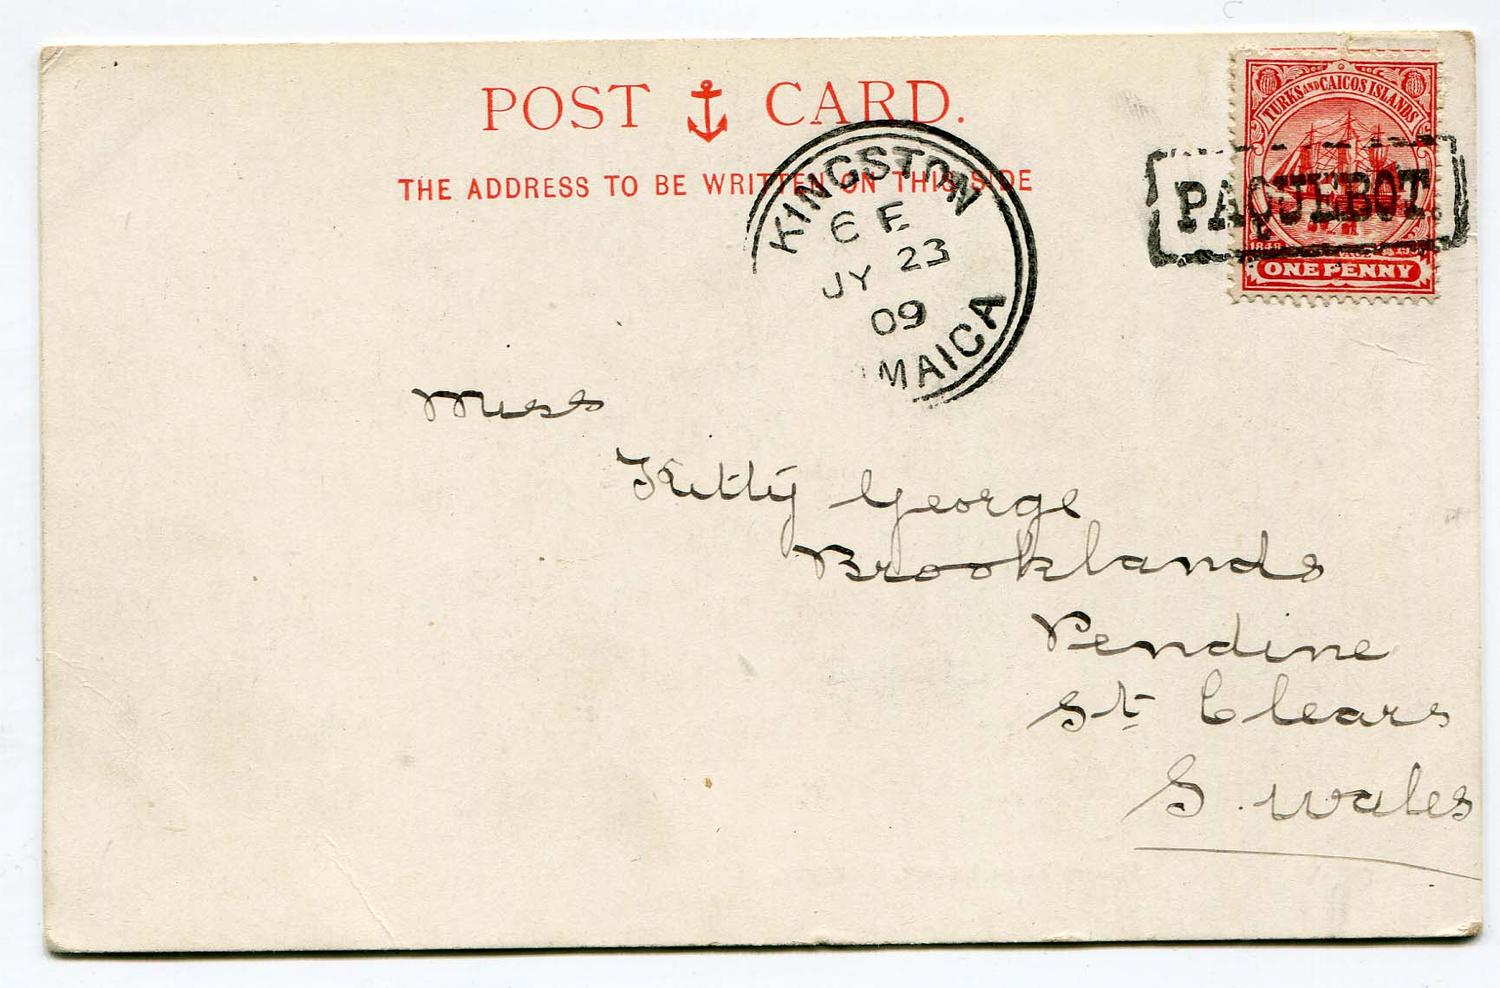 POST CARD.
THE ADDRESS TO BE WRITTEN ON THIS SIDE
KINGSTON
6 E
JY 23
09
MAICA
TURKS AND CAICOS ISLANDS
PAQUEBOT
1848
ONE PENNY
Miss
Kitty George
Brooklands
Pendine
St Clears
S. Wales